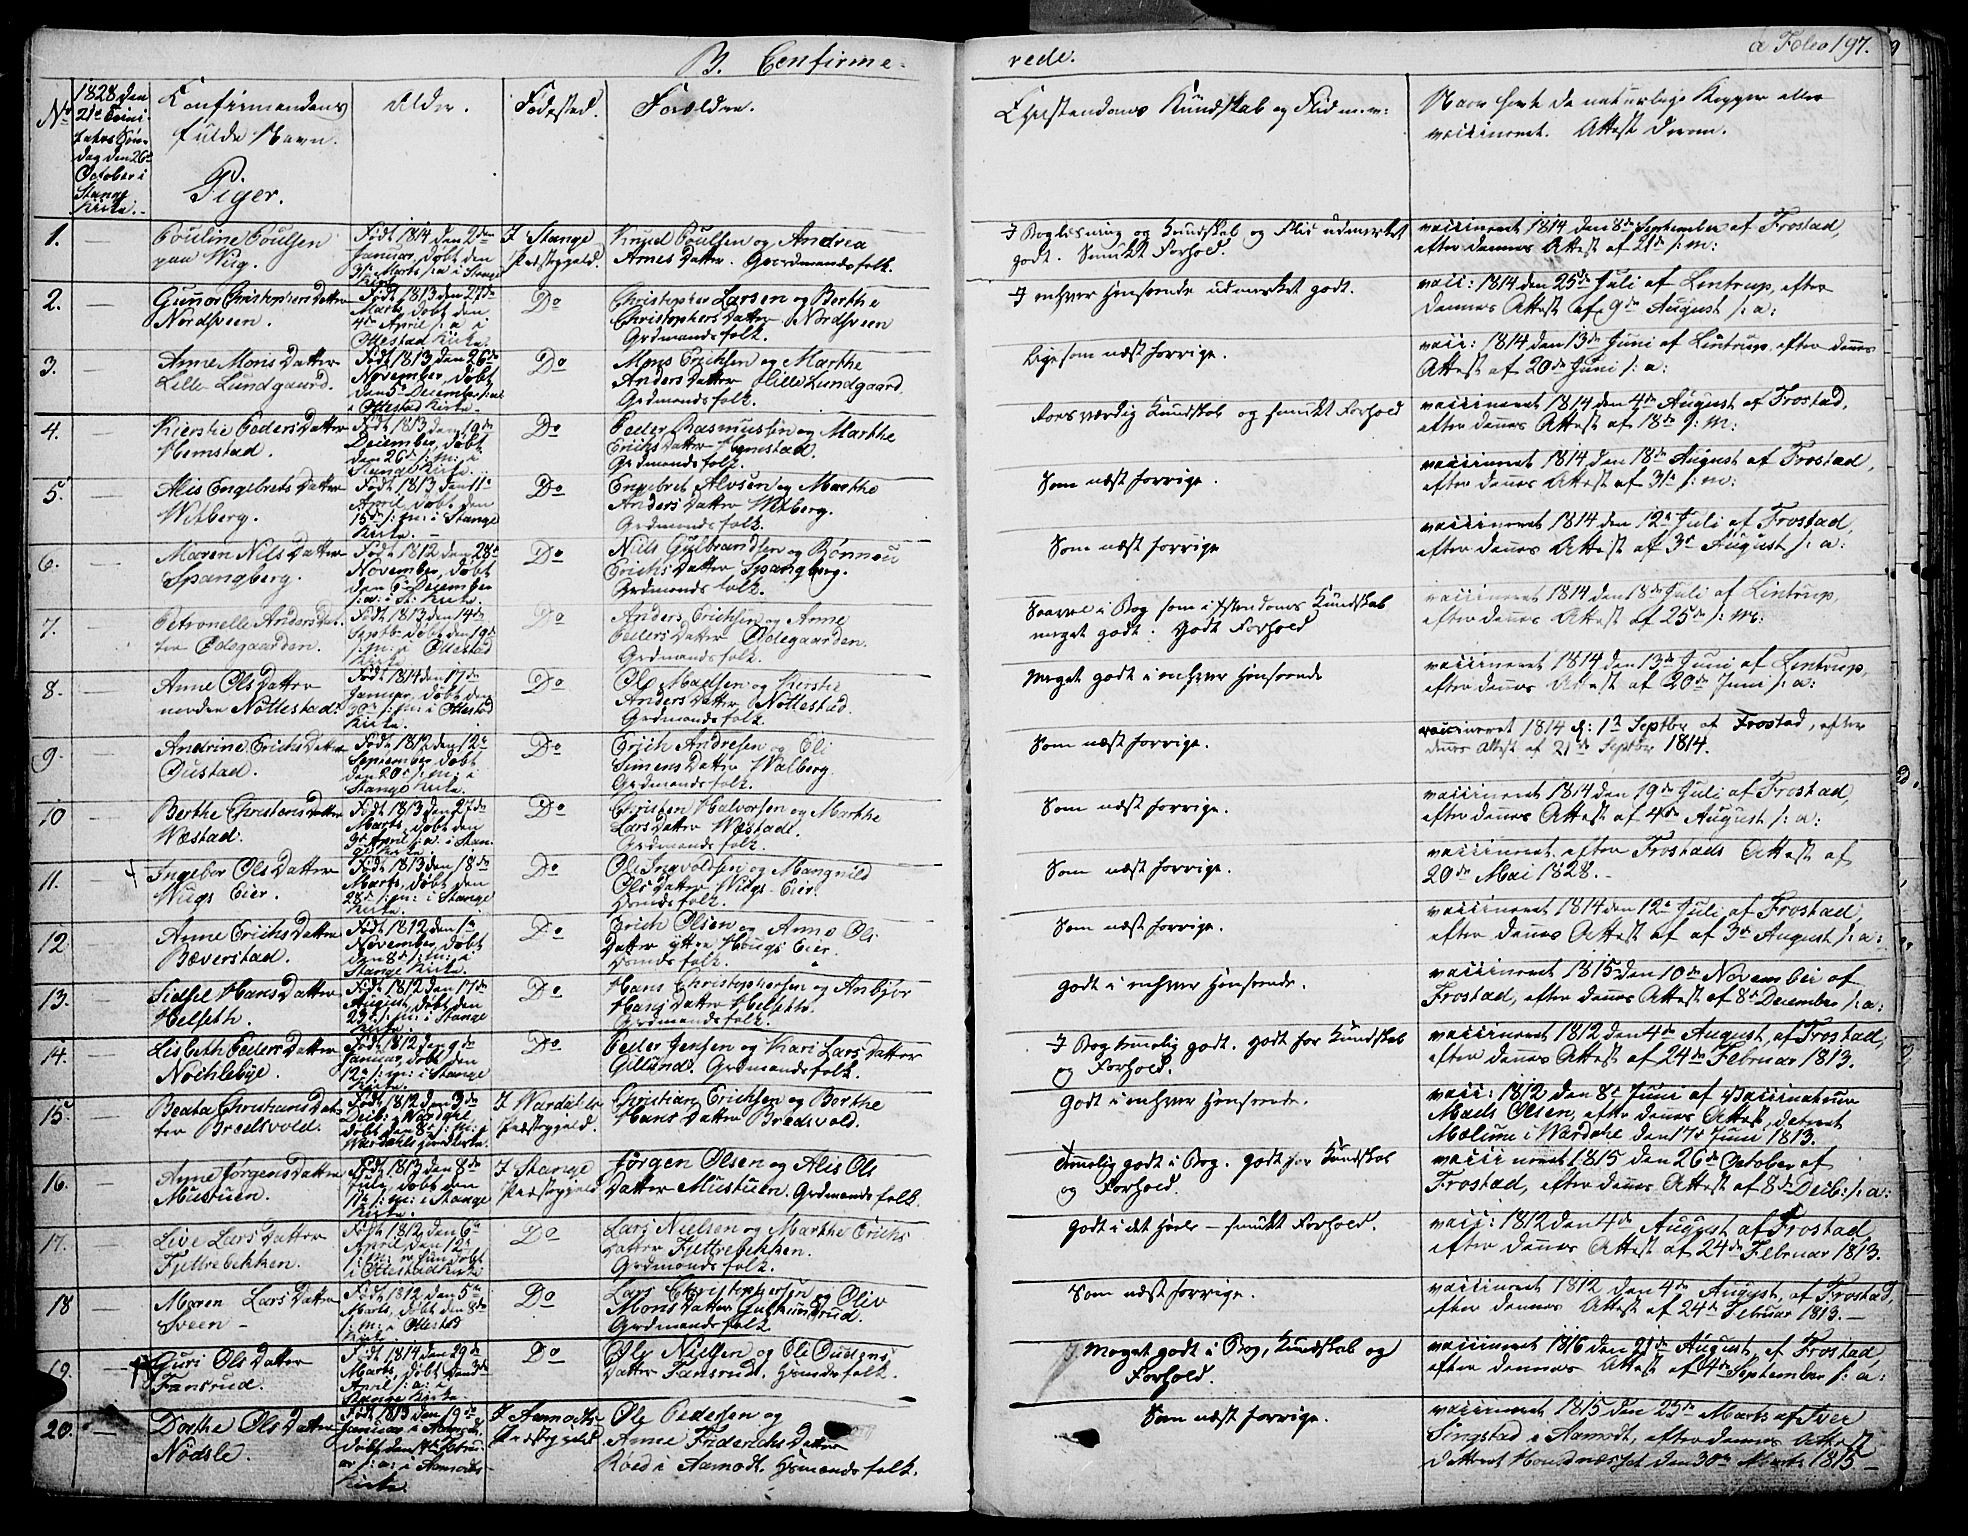 B. Confirme-
rede.
a Folio 197.
No
1828 den
21de Trini-
tatis Søn-
dag den 26de
October i
Stange
Kirke.
Konfirmandens
fulde Navn.
Piger.
Alder.
Fødested.
Forældre.
Christendoms Kundskab og Flid
Naar havt de naturlige Kopper eller
vaccineret. Attest derom.
1.
Pouline Poulsen
paa Wug.
Født 1814 den 2den
Januar, døbt den
Marts s: a i Stange
Kirke
I Stange
Præstegjeld.
Knud Poulsen og Andrea
Arnes Datter. Gaardmandsfolk.
I Boglæsning og Kundskab og Flid udmerket
godt. Smukt Forhold.
vaccineret 1814 den 8de September af Frostad,
efter dennes Attest af 21de s: m:
2.
Gunor Christophers Datter
Nordsveen.
Født 1813 den 27de
Marts, døbt den
4de April s: a i
Ottestad Kirke.
Do
Christopher Larsen og Berthe
Christophers Datter Nordsveen
Grdmandsfolk.
I enhver Henseende udmerket godt.
vacc: 1814 den 25de Juli af Lintrup, efter
dennes Attest af 9de August s: a:
3.
Anne Mons Datter
Lille Lundgaard.
Født 1813 den 26de
November, døbt
den 5te December s: a:
i Ottestad Kirke.
Do
Mons Erichsen og Marthe
Anders Datter Lille Lundgaard
Grdmandsfolk.
Ligesom næst forrige.
vacc: 1814 den 13de Juni af Lintrup, efter dennes
Attest af 20de Juni s: a:
4.
Kierstie Peders Datter
Hemstad.
Født 1813 den 19de
December, døbt
den 26de s: m: i
Stange Kirke.
Do
Peder Rasmussen og Marthe
Erichs Datter Hemstad.
Grdmandsfolk.
Roesværdig Kundskab og smukt Forhold
vaccineret 1814 den 4de August af Frostad,
efter dennes Attest af 18de s: m:
5.
Alis Engebrets Datter
Witberg.
Født 1813 den 11te
April, døbt den
15de s: m: i Stange
Kirke.
Do
Engebret Alvsen og Marthe
Anders Datter Witberg.
Grdmandsfolk.
Som næst forrige.
vaccineret 1814 den 18de August af Frostad,
efter dennes Attest af 31te s: m:
6.
Maren Nils Datter
Spangberg.
Født 1812 den 28de
November, døbt
den 6te December
s: a: i St: Kirke.
Do
Niels Gulbrandsen og Rønnau
Erichs Datter Spangberg.
Grdmandsfolk.
Som næst forrige
vaccineret 1814 den 12te Juli af Frostad,
efter dennes Attest af 3de August s: a:
7.
Petronelle Anders Dat-
ter Ødegaarden.
Født 1813 den 14de
Septbr døbt den 19de
s: m: i Ottestad
Kirke
Do
Anders Erichsen og Anne
Peders Datter Ødegaarden.
Grdmandsfolk.
Saavel i Bog som i Xstendoms Kundskab
meget godt. Godt Forhold
vaccineret 1814 den 18de Juli af Lintrup,
efter dennes Attest af 25de s: m:
8.
Anne Ols Datter
nordre Nøttestad.
Født 1814 den 17de
Januar, døbt den
30te s: m: i Ottestad
Kirke.
Do
Ole Madsen og Kierstie
Anders Datter, Nøttestad.
Grdmandsfolk
Meget godt i enhver Henseende
vaccineret 1814 den 13de Juni af Lintrup,
efter dennes Attest af 20de Juni s: a:
9.
Andrine Erichs Datter
Oustad.
Født 1812 den 12te
September, døbt
den 20de s: m: i
Stange Kirke.
Do
Erich Andresen og Eli
Simens Datter Walberg.
Grdmandsfolk.
Som næst forrige.
vaccineret 1814 d: 1te Septbr af Frostad, efter
dennes Attest af 21de Septbr 1814.
10
Berthe Christens Datter
Wæstad.
Født 1813 den 27de
Marts, døbt den
3de April s: a: i Stan-
ge Kirke.
Do
Christen Halvorsen og Marthe
Lars Datter Wæstad.
Grdmandsfolk.
Som næst forrige.
vaccineret 1814 den 19de Juli af Frostad,
efter dennes Attest af 4de August s: a:
11.
Ingebor Ols Datter
Wugs Eier.
Født 1813 den 18de
Marts, døbt den
28de s: m: i Stange
Kirke.
Do
Ole Ingvoldsen og Mangnild
Ols Datter Wugs Eier.
Huusmdsfolk.
Som næst forrige.
vaccineret efter Frostads Attest af
20de Mai 1828.
12.
Anne Erichs Datter
Bæverstad.
Født 1812 den 1te
November, døbt
den 8de s: m: i
Stange Kirke.
Do
Erich Olsen og Anne Ols
Datter ytre Hougs Eier.
Som næst forrige.
vaccineret 1814 den 12te Juli af Frostad,
efter dennes Attest af af 3de August s: a:
13.
Sidsel Hans Datter
Helseth.
Født 1812 den 17de
August, døbt den
23de s: m: i Stange
Kirke.
Do
Hans Christophersen og Anbjør
Hans Datter Helseth.
Grdmandsfolk.
Godt i enhver Henseende.
vaccineret 1815 den 10de November af
Frostad, efter dennes Attest af 8de December s: a:
14.
Lisbeth Peders Datter
Nochlebye.
Født 1812 den 9de
Januar, døbt den
12te s: m: i Stange
Kirke.
Do
Peder Jensen og Kari Lars Datter
Gillund. Grdmandsfolk.
I Bog temmelig godt. Godt for Kundskab
og Forhold.
vaccineret 1812 den 4de August, af Frostad,
efter dennes Attest af 24de Februar 1813.
15
Beata Christians Dat-
ter Bredsvold.
Født 1812 den 3de
Decb: i Wardahl
døbt den 8de s: m: i
Wardahls Hovedkirke.
I Wardahls
Præstegjeld.
Christian Erichsen og Berthe
Hans Datter Bredsvold.
Godt i enhver Henseende.
vacc: 1812 den 8de Juni af Vaccinateur
Mads Olsen, efter dennes Attest, dateret
Mælum i Wardahl den 17de Juni 1813.
16.
Anne Jørgens Datter
Mustuen.
Født 1813 den 8de
July, døbt den
s: m: i Stange
Kirke.
I Stange
Præstegjeld
Jørgen Olsen og Alis Ols
Datter Mustuen. Grdmandsfolk.
Temmelig godt i Bog. Godt for Kundskab
og Forhold.
vaccineret 1815 den 26de October af
Frostad, efter dennes Attest af 8de Decb: s: a:
17.
Live Lars Datter
Fjettrebekken.
Født 1812 den 6te
April, den 12te
s: m: er hun døbt
i Ottestad Kirke
Do
Lars Nielsen og Marthe Erichs
Datter Fjettrebekken.
Grdmandsfolk.
Godt i det Hele – smukt Forhold.
vacc: 1812 den 4de August af Frostad
efter dennes Attest af 24de Februar 1813.
18
Maren Lars Datter
Sveen
Født 1812 den 5te
Marts, døbt den 8de
s: m: i Ottestad
Kirke
Do
Lars Christophersen og Oliv
Mons Datter
Grdmandsfolk
Som næst forrige.
vaccineret 1812 den 4de August, af Frostad,
efter dennes Attest af 24de Februar 1813.
19.
Guri Ols Datter
Fansrud.
Født 1814 den 29de
Marts, døbt den 3de
April s: a: i
Stange Kirke.
Do
Ole Nielsen og Oli Oustens
Datter Fansrud. Huusmdsfolk.
Meget godt i Bog, Kundskab og
Forhold.
vaccineret 1816 den 21de August, af Frostad,
efter dennes Attest af 4de September s: a:
20.
Dorthe Ols Datter
Nødsle.
Født 1813 den 19de
Januar i Aamodt,
døbt den Febru-
ar s: a: i Aamodts
Kirke.
I Aamodts
Præstegjeld
Ole Pedersen og
Anne Friderichs Datter
Roed i Aamodt. Huusmandsfolk.
Som næst forrige.
vaccineret 1815 den 25de Marts af Iver
Singstad i Aamodt, efter dennes Attest
datteret den 30te Marts 1815.